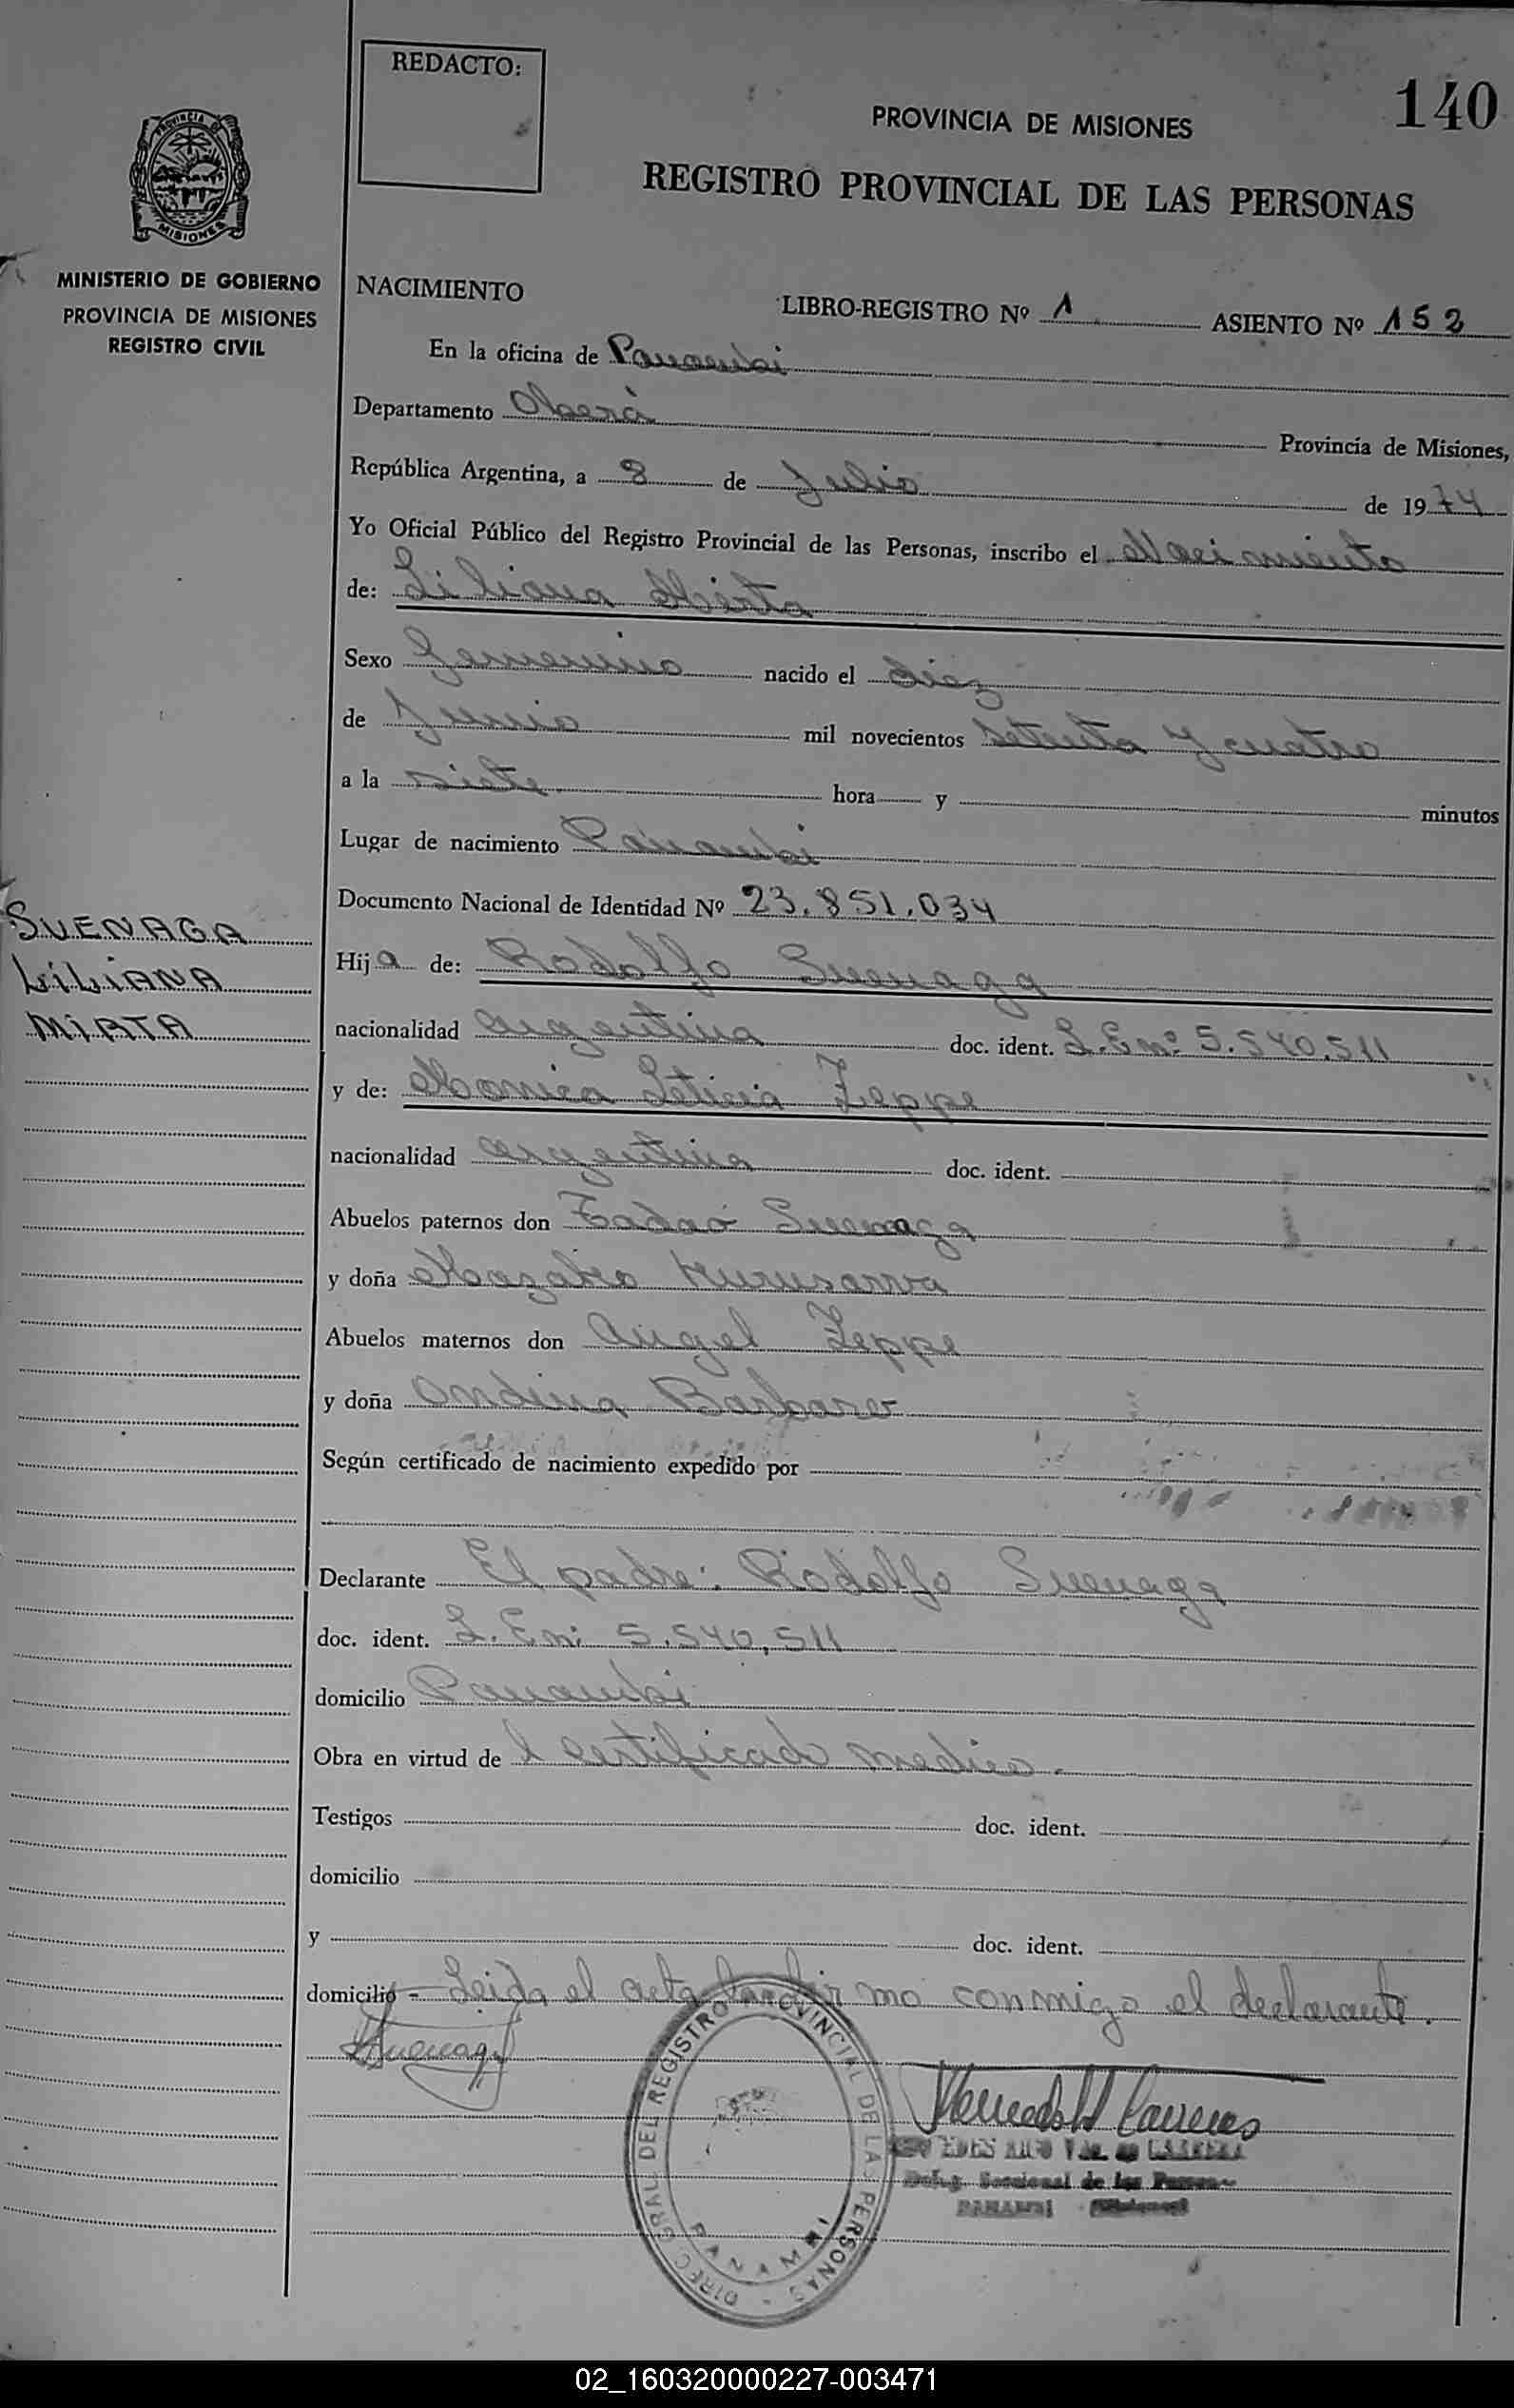 REDACTO:
140
PROVINCIA DE MISIONES
REGISTRO PROVINCIAL DE LAS PERSONAS
PROVINCIA DE
MISIONES
MINISTERIO DE GOBIERNO
PROVINCIA DE MISIONES
REGISTRO CIVIL
NACIMIENTO LIBRO-REGISTRO Nº 1 ASIENTO Nº 152
En la oficina de Panambi
Departamento Oberá Provincia de Misiones,
República Argentina, a 8 de Julio de 1974
Yo Oficial Público del Registro Provincial de las Personas, inscribo el Nacimiento
de: Liliana Mirta
Sexo Femenino nacido el diez
de Junio mil novecientos setenta y cuatro
a la siete hora y minutos
Lugar de nacimiento Panambi
Documento Nacional de Identidad Nº 23.851.034
SUENAGA
LiLiANA
MiRTA
Hija de: Rodolfo Suenaga
nacionalidad argentina doc. ident. L.E nº 5.540.511
y de: Monica Leticia Zeppe
nacionalidad argentina doc. ident.
Abuelos paternos don Tadao Suenaga
y doña Kurusawa
Abuelos maternos don Angel Zeppe
y doña Ondina
Según certificado de nacimiento expedido por
Declarante El padre: Rodolfo Suenaga
doc. ident. L.E nº 5.540.511
domicilio Panambi
Obra en virtud de l certificado medico.
Testigos doc. ident.
domicilio
y doc. ident.
domicilio - Leida el acta la firmo conmigo el declarante.
Suenaga
DIREC. GRAL. DEL REGISTRO PROVINCIAL DE LAS PERSONAS -
PANAMBI
Seccional de las
PANAMBI (Misiones)
02_160320000227-003471